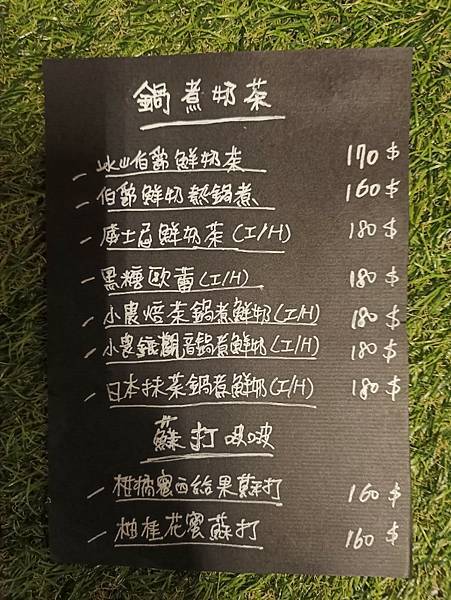 鍋煮奶茶
冰山伯爵鮮奶茶 170 $
伯爵鮮奶熱鍋煮 160 $
威士忌鮮奶茶(I/H) 180 $
黑糖歐蕾(I/H) 180 $
小農焙茶鍋煮鮮奶(I/H) 180 $
小農鐵觀音鍋煮鮮奶(I/H) 180 $
日本抹茶鍋煮鮮奶(I/H) 180 $
蘇打啵啵
柑橘蜜西給果蘇打 160 $
柚桂花蜜蘇打 160 $